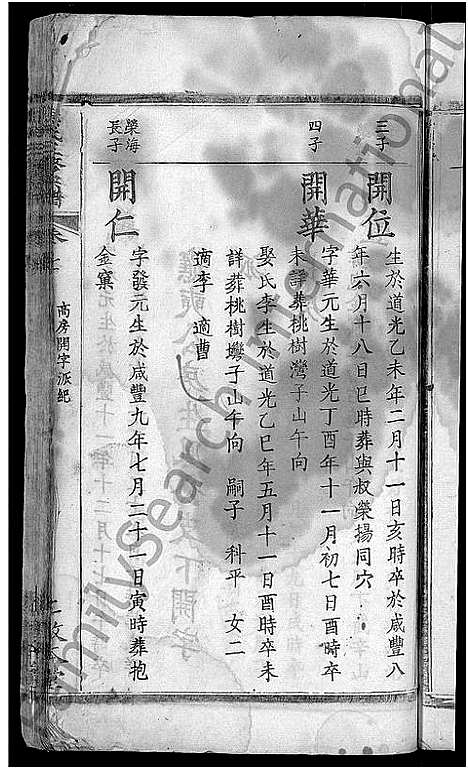 三子
開位
生於道光乙未年二月十一日亥時卒於咸豐八
年六月十八日巳時葬與叔榮揚同穴
四子
開華
字華元生於道光丁酉年十一月初七日酉時卒
未詳葬桃樹灣子山午向
娶氏李生於道光乙巳年五月十一日酉時卒未
詳葬桃樹灣子山午向 嗣子 科平 女二
適李 適曹
榮海
長子
開仁
字發元生於咸豐九年七月二十一日寅時葬抱
金窠
高房開字派紀
FamilySearch International